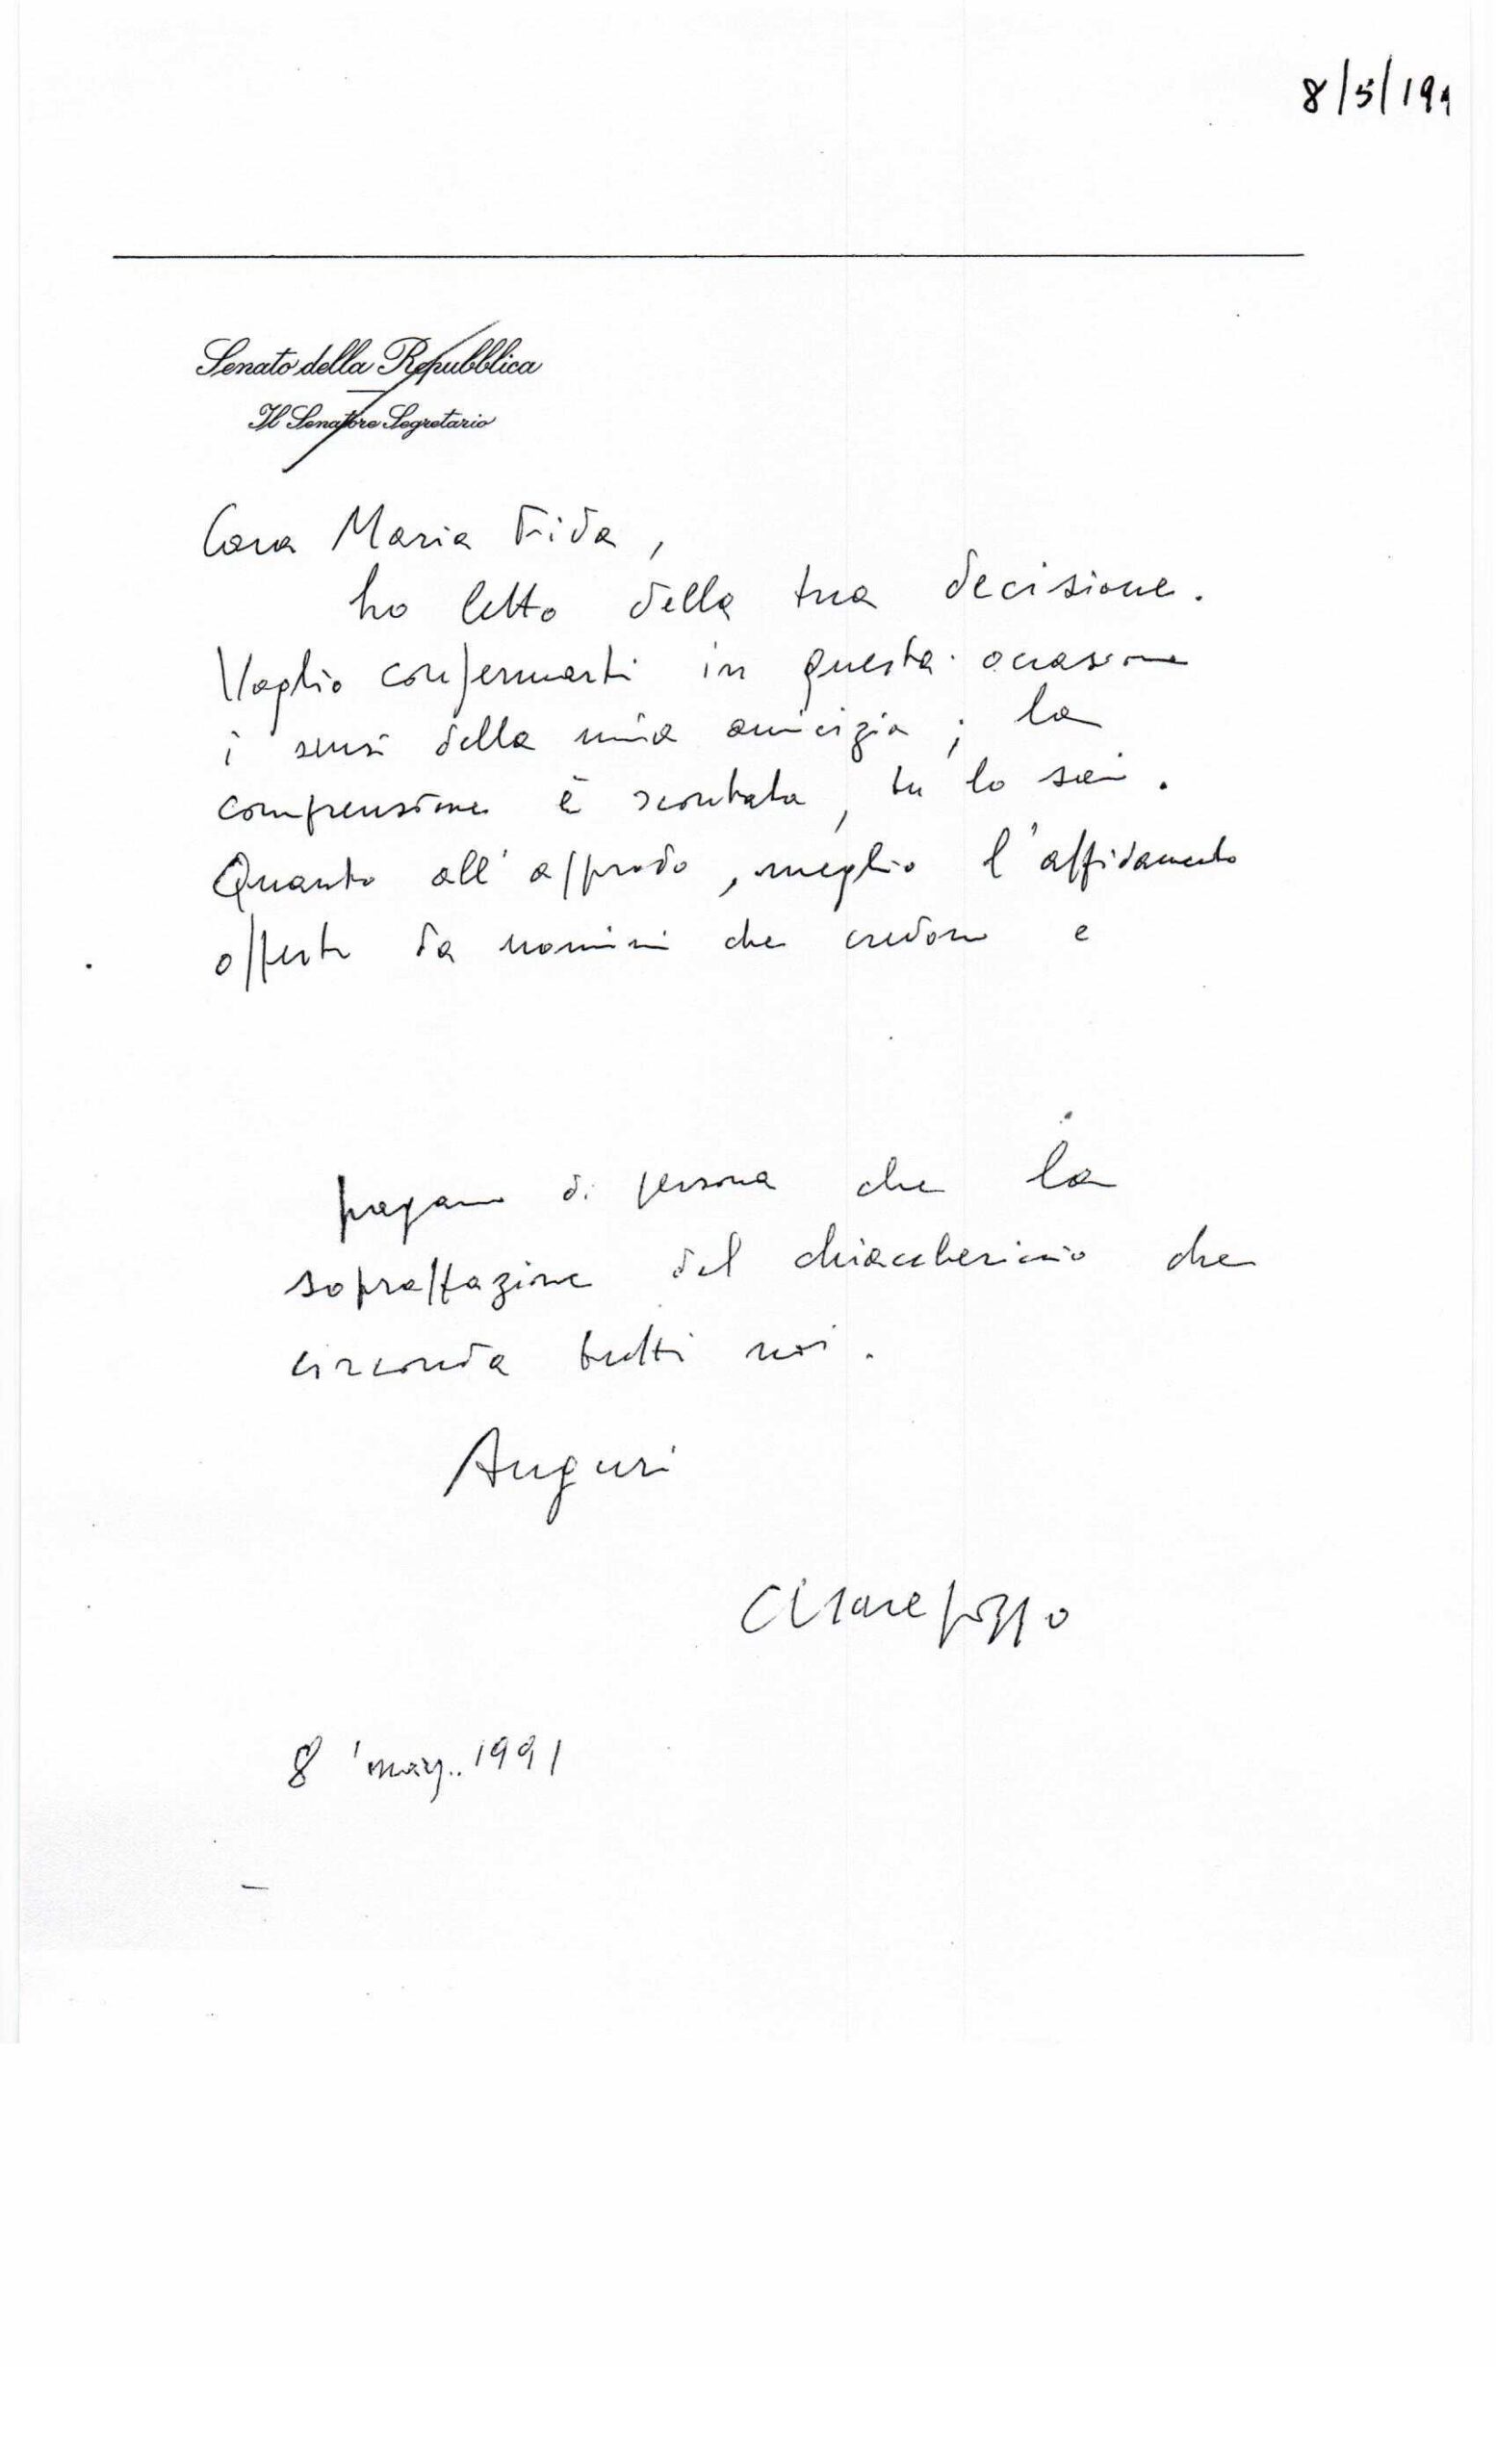 8/5/199
Senato della Repubblica
Il Senatore Segretario
Cara Maria Fida,
ho letto della tua decisione.
Voglio confermarti in questa occasione
i sensi della mia amicizia; la
comprensione è scontata, tu lo sai.
Quanto all'approdo, meglio l'affidamento
offerto da uomini che credono e
pagano di persona che la
sopraffazione del chiacchericcio che
circonda tutti noi.
Auguri
8 mag. 1991